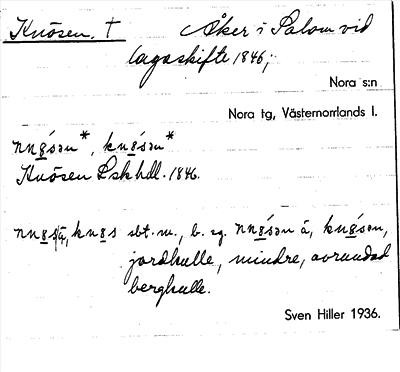 Knösen. † Åker i Salom vid
lagaskifte 1846;
Nora s:n
Nora tg, Västernorrlands l.
nnɞ́sən*, knɞ́sən*
Knösen Lskhdl. 1846.
knɞs sbt. m., b. sg. nnɞ́sən å, knɞ́sən,
jordkulle, mindre, avrundad
bergkulle.
Sven Hiller 1936.